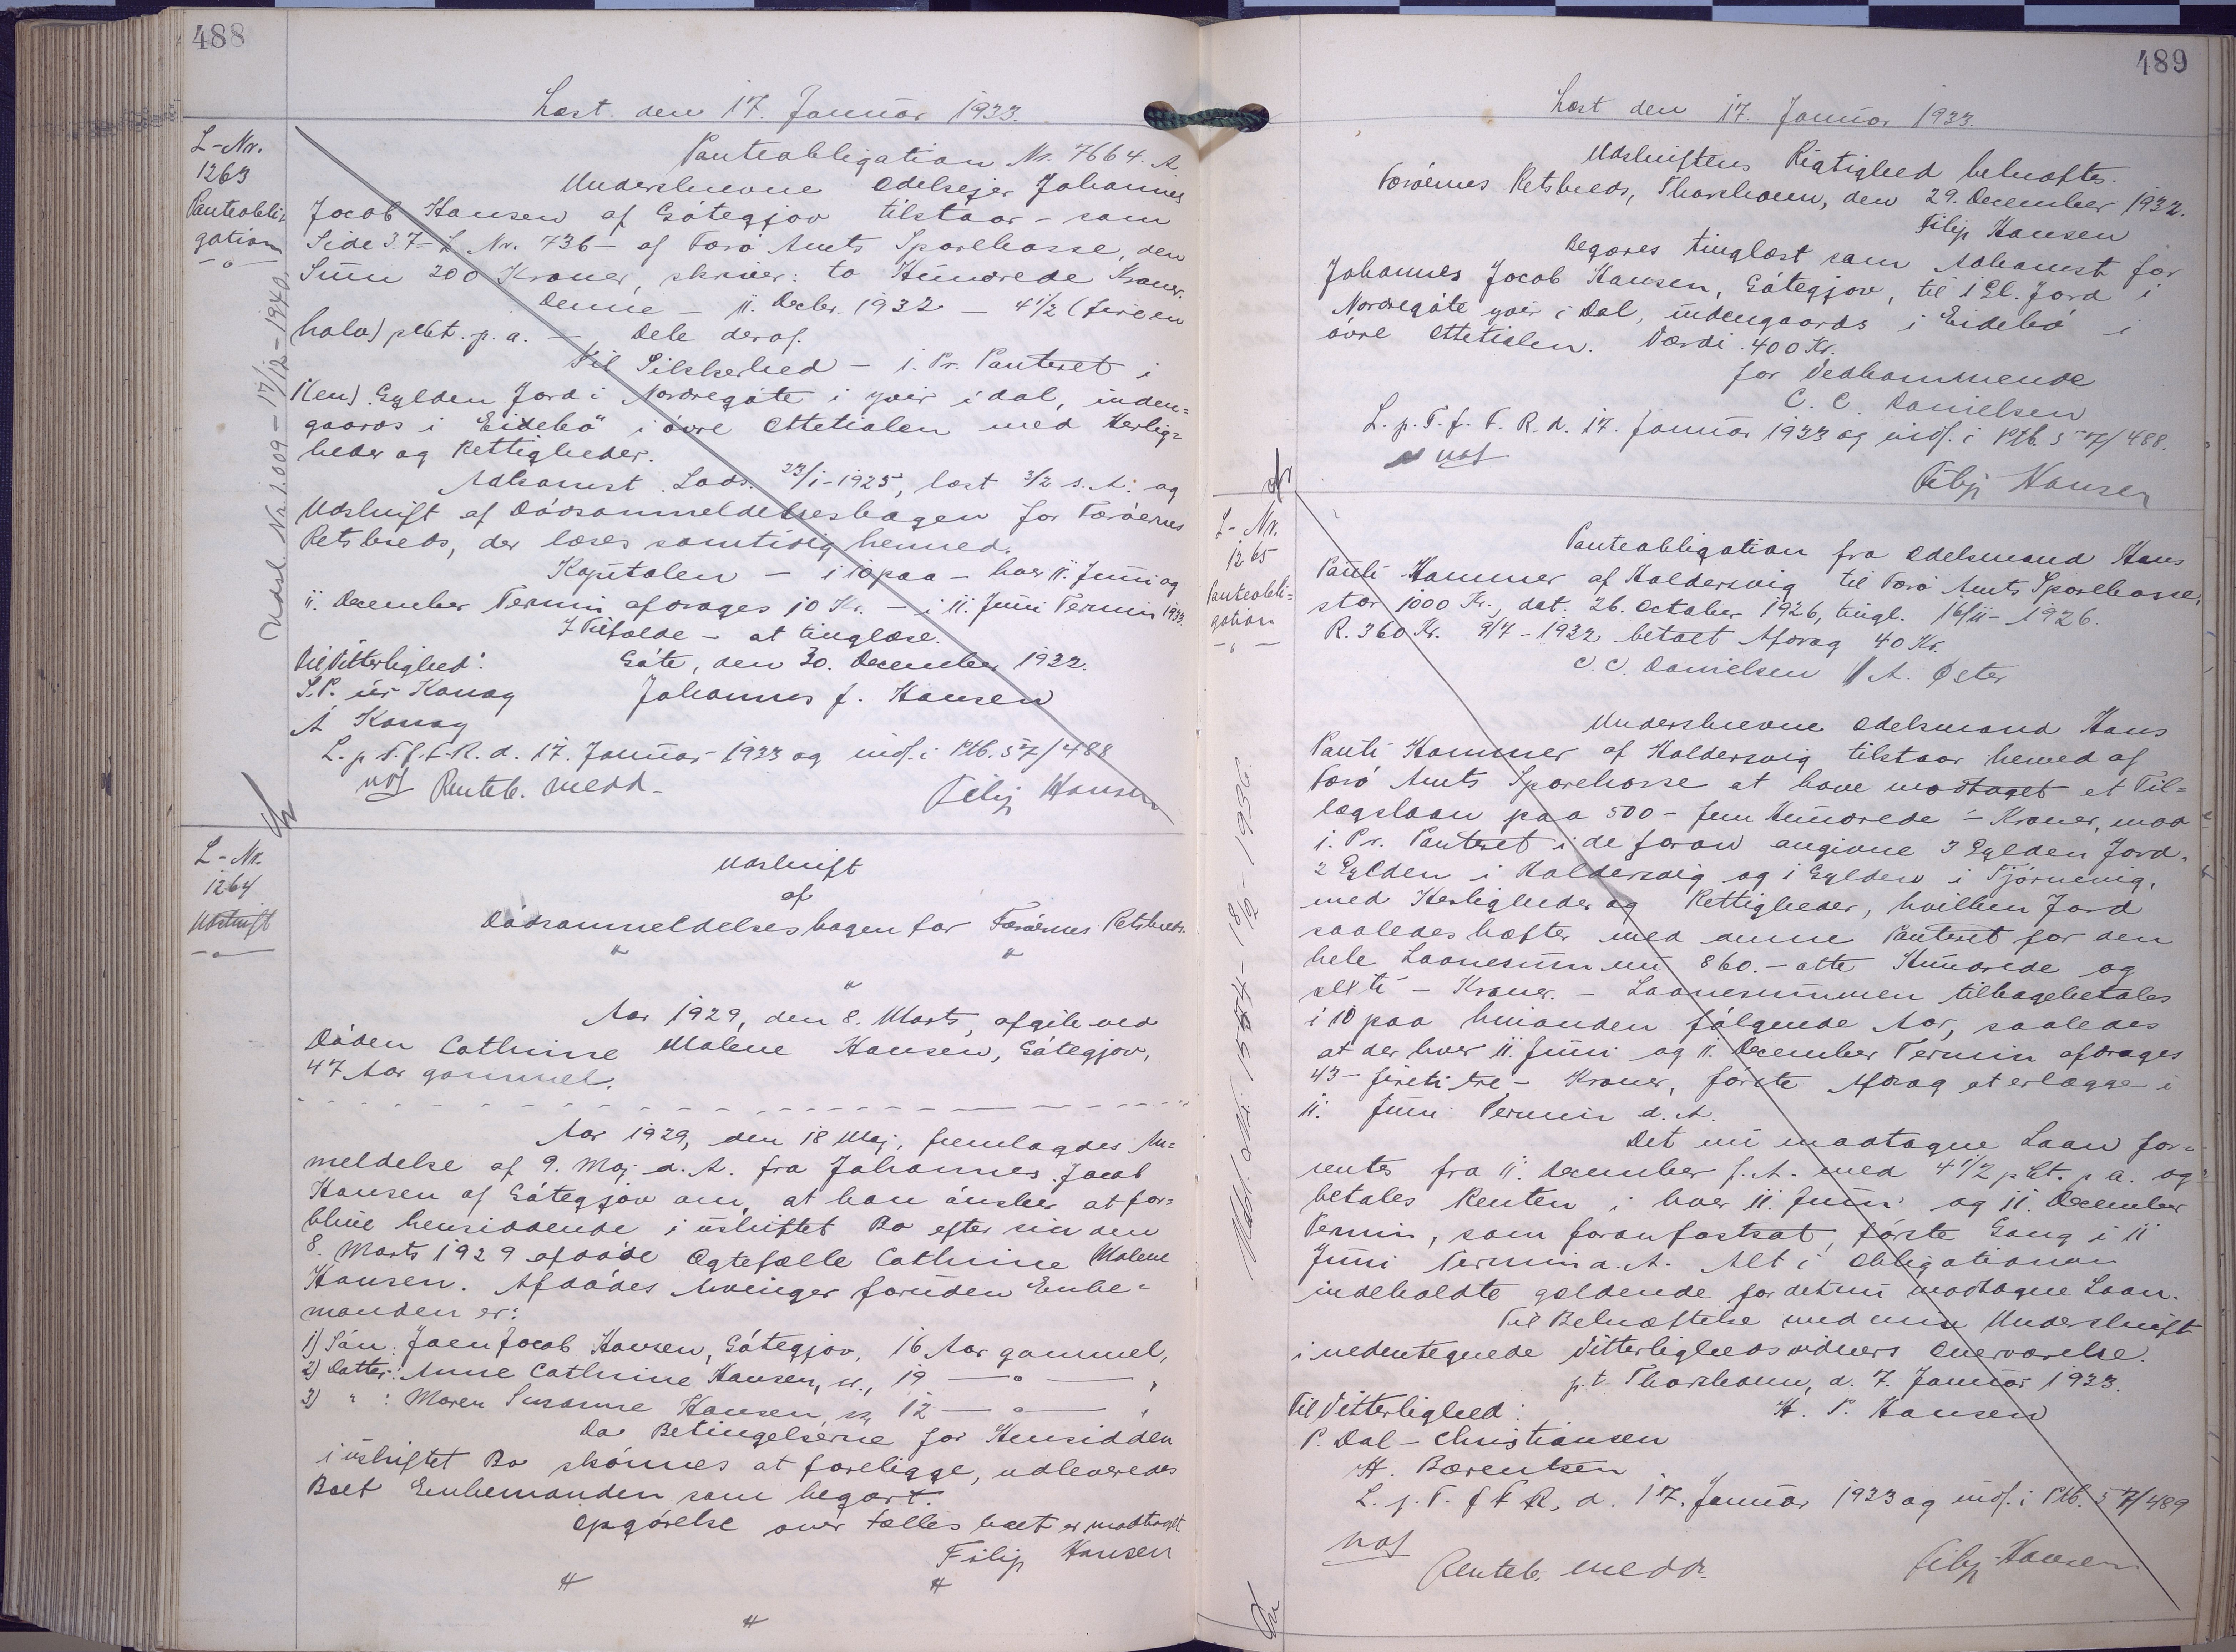 488
Læst den 17. Januar 1933.
L-Nr.
1263
Panteobli-
gation
Udsl. Nr. 1.009 - 17/12 - 1940.
Panteobligation Nr. 7664. A.
Underskrevne Odelsejer Johannes
Jacob Hansen af Gøtegjov tilstaar - som
Side 37 - L. Nr. 736 - af Færø Amts Sparekasse, den
Sum 200 Kroner, skriver: to Hundrede Kroner.
Denne - 11. Decbr. 1932 - 4 1/2 (fire en
halv) pCt. p. a. - Dele deraf.
Til Sikkerhed - 1. Pr. Panteret i
1 (en) Gylden Jord i Nordregøte i yvir i dal, inden-
gaards i "Eidebø" i øvre Ottetialen med Herlig-
heder og Rettigheder.
Adkomst. Lods. 23/1-1925, læst 3/2 s. A. og
Udskrift af Dødsanmeldelsesbogen for Færøernes
Retskreds, der læses samtidig hermed.
Kapitalen - i 10 paa - hver 11. Juni og
11. December Termin afdrages 10 Kr. - i 11. Juni Termin 1933.
I Tilfælde - at tinglæse.
Til Vitterlighed: Gøte, den 30. December 1932.
S.P. úr Konoy Johannes J. Hansen
A Konoy
L. p. T. f. F. R. d. 17. Januar 1933 og indf. i Ptb. 57/488
Renteb. medd. Filip Hansen
L-Nr.
1264
Udskrift
Udskrift
af
Dødsanmeldelsesbogen for Færøernes Retskreds.
Aar 1929, den 8. Marts, afgik ved
Døden Cathrine Malene Hansen, Gøtegjov,
47 Aar gammel.
Aar 1929, den 18 Maj, fremlagdes An-
meldelse af 9. Maj d. A. fra Johannes Jacob
Hansen af Gøtegjov om, at han ønsker at for-
blive hensiddende i uskiftet Bo efter sin den
8. Marts 1929 afdøde Ægtefælle Cathrine Malene
Hansen. Afdødes Arvinger foruden Enke-
manden er:
1) Søn: Joen Jacob Hansen, Gøtegjov, 16 Aar gammel,
2) Datter: Anne Cathrine Hansen, sst., 19 — " — ,
3) " : Maren Susanne Hansen, sst. 12 — " — ,
Da Betingelserne for Hensidden
i uskiftet Bo skønnes at foreligge, udleveredes
Boet Enkemanden som begært.
Opgørelse over Fælles boet er modtaget
Filip Hansen
489
Læst den 17. Januar 1933.
Udskriftens Rigtighed bekræftes.
Færøernes Retskreds, Thorshavn, den 29. December 1932.
Filip Hansen
Begæres tinglæst som Adkomst for
Johannes Jacob Hansen, Gøtegjov, til 1 Gl. Jord i
Nordregøte yvir i Dal, indengaards i Eidebø i
øvre Ottetialen. Værdi 400 Kr.
For Vedkommende
C. C. Danielsen
L. p. T. f. F. R. d. 17. Januar 1933 og indf. i Ptb. 57/488.
Filip Hansen
L-Nr.
1265
Panteobli-
gation
Panteobligation fra Odelsmand Hans
Pauli Hammer af Haldersvig til Færø Amts Sparekasse,
stor 1000 Kr., dat. 26. October 1926, tingl. 16/11-1926.
R. 360 Kr. 9/7-1932 betalt Afdrag 40 Kr.
C. C. Danielsen / A. Øster
Underskrevne Odelsmand Hans
Pauli Hammer af Haldersvig tilstaar herved af
Færø Amts Sparekasse at have modtaget et Til-
lægslaan paa 500 - fem Hundrede - Kroner, mod
1. Pr. Panteret i de foran angivne 3 Gylden Jord.
2 Gylden i Haldersvig og 1 Gylden i Tjørnevig,
med Herligheder og Rettigheder, hvilken Jord
saaledes hæfter med denne Panteret for den
hele Laanesum nu 860. - otte Hundrede og
seksti - Kroner. - Laanesummen tilbagebetales
i 10 paa hinanden følgende Aar, saaledes
at der hver 11. Juni og 11. December Termin afdrages
43 - fireti tre - Kroner, første Afdrag at erlægge i
11. Juni Termin d. A.
Det nu modtagne Laan for-
rentes fra 11. December f. A. med 4 1/2 pCt. p. a. og
betales Renten i hver 11. Juni og 11. December
Termin, som foran fastsat, første Gang i 11
Juni Termin d. A. Alt i Obligationen
indeholdte gældende for det nu modtagne Laan.
Til Bekræftelse med min Underskrift
i nedentegnede Vitterlighedsvidners Overværelse.
p. t. Thorshavn, d. 7. Januar 1933.
Til Vitterlighed: H. P. Hansen
P. Dal-Christiansen
H. Bærentsen
L. p. T. f. F. R. d. 17. Januar 1933 og indf. i Ptb. 57/489
Renteb. medd. Filip Hansen